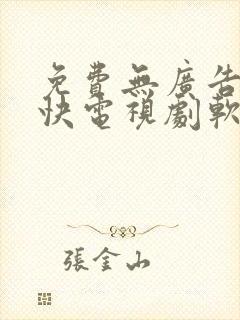 免費無廣告
快電視劇軟
張金山